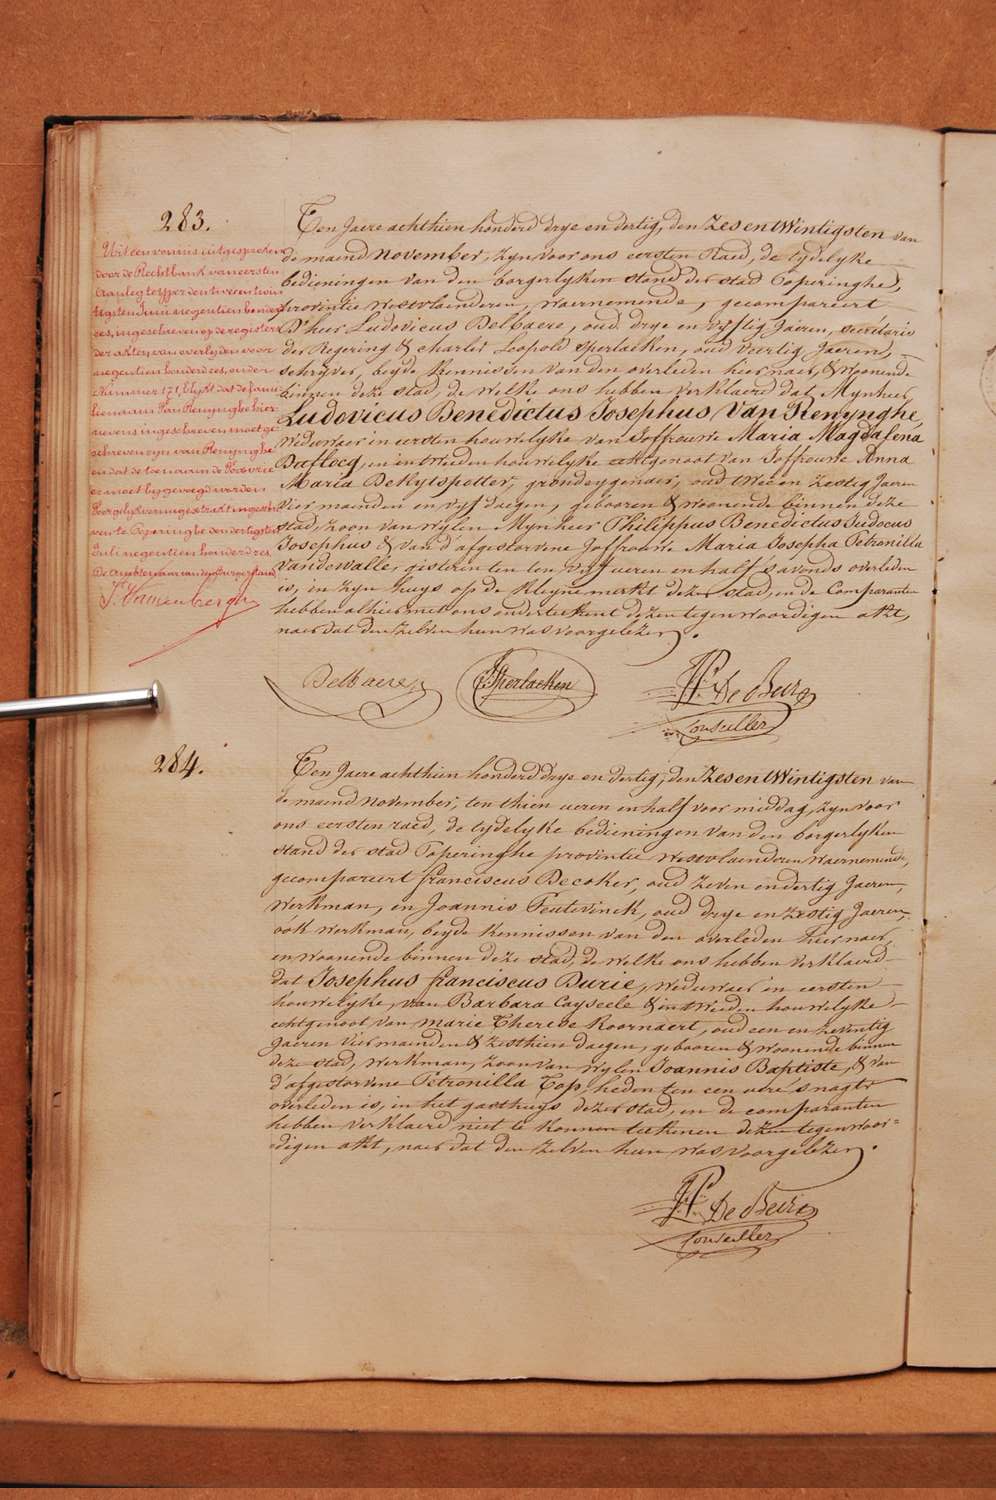 283.
Uit een vonnis uitgesproken
door de Rechtbank van eersten
Aanleg te Yper den tweeentwin
tigsten Juni negentien honderd
zes, ingeschreven op de registers
der akten van overlijden voor
negentien honderd zes, onder
nummer 171, blijkt dat de fami
lienaam Van Renynghe hier
nevens ingeschreven moet ge
schreven zyn van Renynghe
en dat de toenaam de Voxvrie
er moet bygevoegd worden
te Poperinghe den dertigsten
Juli negentien honderd zes
De Ambtenaar van den Burgerstand
Ten Jaere achthien honderd drye en dertig, den Zes en twintigsten van
de maend November, zyn voor ons eersten Raed, de tydelyke
bedieningen van den borgerlyken stand der stad Poperinghe,
provintie Westvlaenderen, waernemende, gecompareert
D'heer Ludovicus Delbaere, oud drye en vyftig Jaeren, secretaris
der Regering & Charles Leopold Sperlaeken, oud veertig Jaeren,
schryver, beyde kennissen van den overleden hier naer, & woonende
binnen deze stad, de welke ons hebben verklaerd dat Mynheer
Ludovicus Benedictus Josephus Van Renynghe,
Weduwaer in eersten houwelyke van Joffrouwe Maria Magdalena
Baeflocq, en in tweeden houwelyke echtgenoot van Joffrouwe Anna
Maria De Kytspotter, grondeygenaer, oud twee en zestig Jaeren
vier maenden en vyf daegen, gebooren & woonende binnen deze
stad, zoon van wylen Mynheer Philippus Benedictus Judocus
Josephus & van d'afgestorvene Joffrouwe Maria Josepha Petronilla
Vandewalle, gisteren ten tien ueren en half s'avonds overleden
is, in zyn huys op de Kleyne merkt dezer stad, en de Comparanten
hebben alhier met ons onderteekent dezen tegenwoordigen akt,
naer dat den zelven hun was voorgelezen.
Delbaere
Sperlaeken
De Beir
Conseiller
284.
Ten Jaere achthien honderd drye en dertig, den Zes en twintigsten van
de maend November, ten thien ueren en half voor middag, zyn voor
ons eersten raed, de tydelyke bedieningen van den borgerlyken
stand der stad Poperinghe provintie Westvlaenderen waernemende,
gecompareert Franciscus Decoker, oud zeven en dertig Jaeren,
werkman, en Joannis Feutevinck, oud drye en zestig Jaeren,
ook werkman, beyde kennissen van den overleden hier naer,
en woonende binnen deze stad, de welke ons hebben verklaerd
dat Josephus Franciscus Durie, weduwaer in eersten
houwelyke, van Barbara Cayseele & in tweeden houwelyke
echtgenoot van Marie Therese Roornaert, oud een en zeventig
Jaeren vier maenden & zesthien daegen, gebooren & woonende binnen
deze stad, werkman, zoon van wylen Joannis Baptiste, & van
d'afgestorvene Petronilla Top, heden ten een ure s'nagts
overleden is, in het gasthuys dezer stad, en de comparanten
hebben verklaerd niet te konnen teekenen dezen tegenwoor=
digen akt, naer dat den zelven hun was voorgelezen.
De Beir
Conseiller